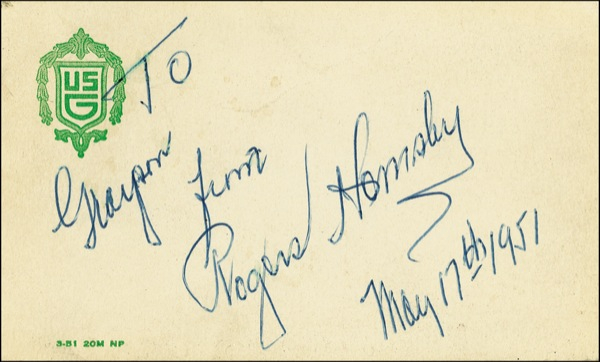 USG
To
Grayson from
Rogers Hornsby
May 17th 1951
3-51 20M NP